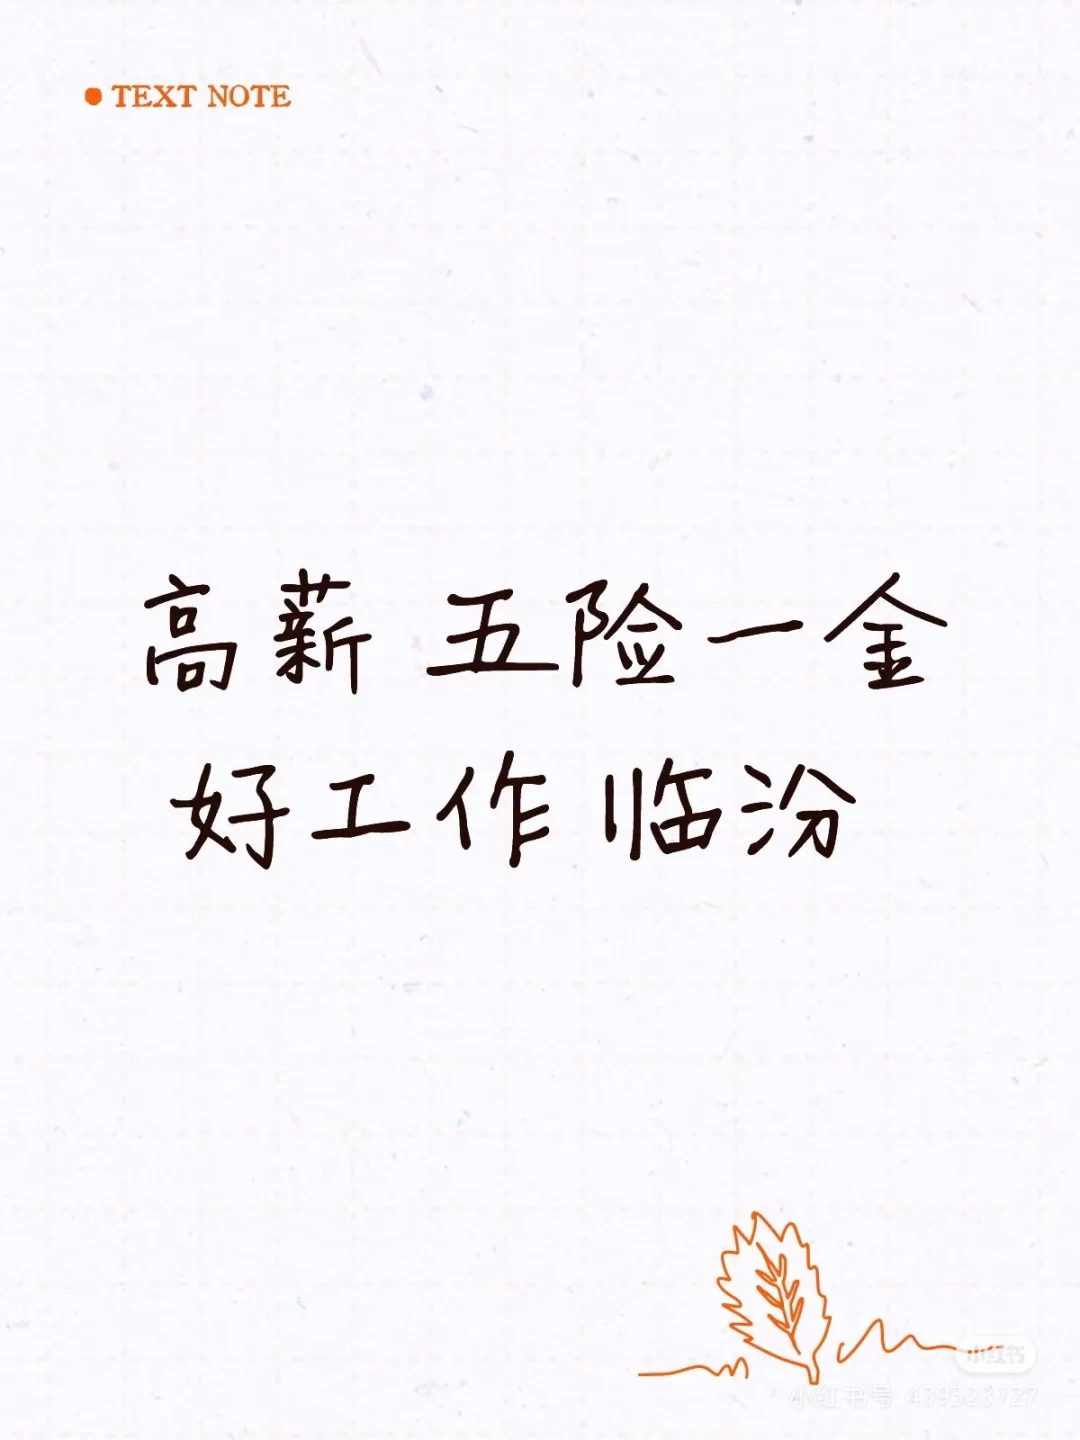 TEXT NOTE
高薪 五险一金
好工作 临汾
小红书
小红书号 439523727